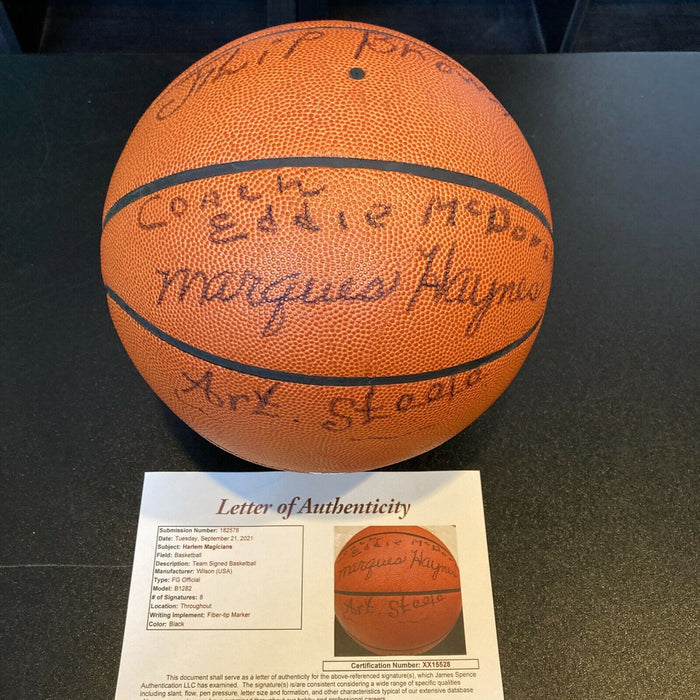 Coach
Eddie McDon
Marques Haynes
Art. Stoolo
Letter of Authenticity
Submission Number: 182578
Date: Tuesday, September 21, 2021
Subject: Harlem Magicians
Field: Basketball
Description: Team Signed Basketball
Manufacturer: Wilson (USA)
Type: FG Official
Model: B1282
# of Signatures: 8
Location: Throughout
Writing Implement: Fiber-tip Marker
Color: Black
Eddie McD
Marques Haynes
Art. Stoolo
Certification Number: XX15528
This document shall serve as a letter of authenticity for the above-referenced signature(s), which James Spence
Authentication LLC has examined. The signature(s) is/are consistent considering a wide range of specific qualities
including slant, flow, pen pressure, letter size and formation, and other characteristics typical of our extensive database